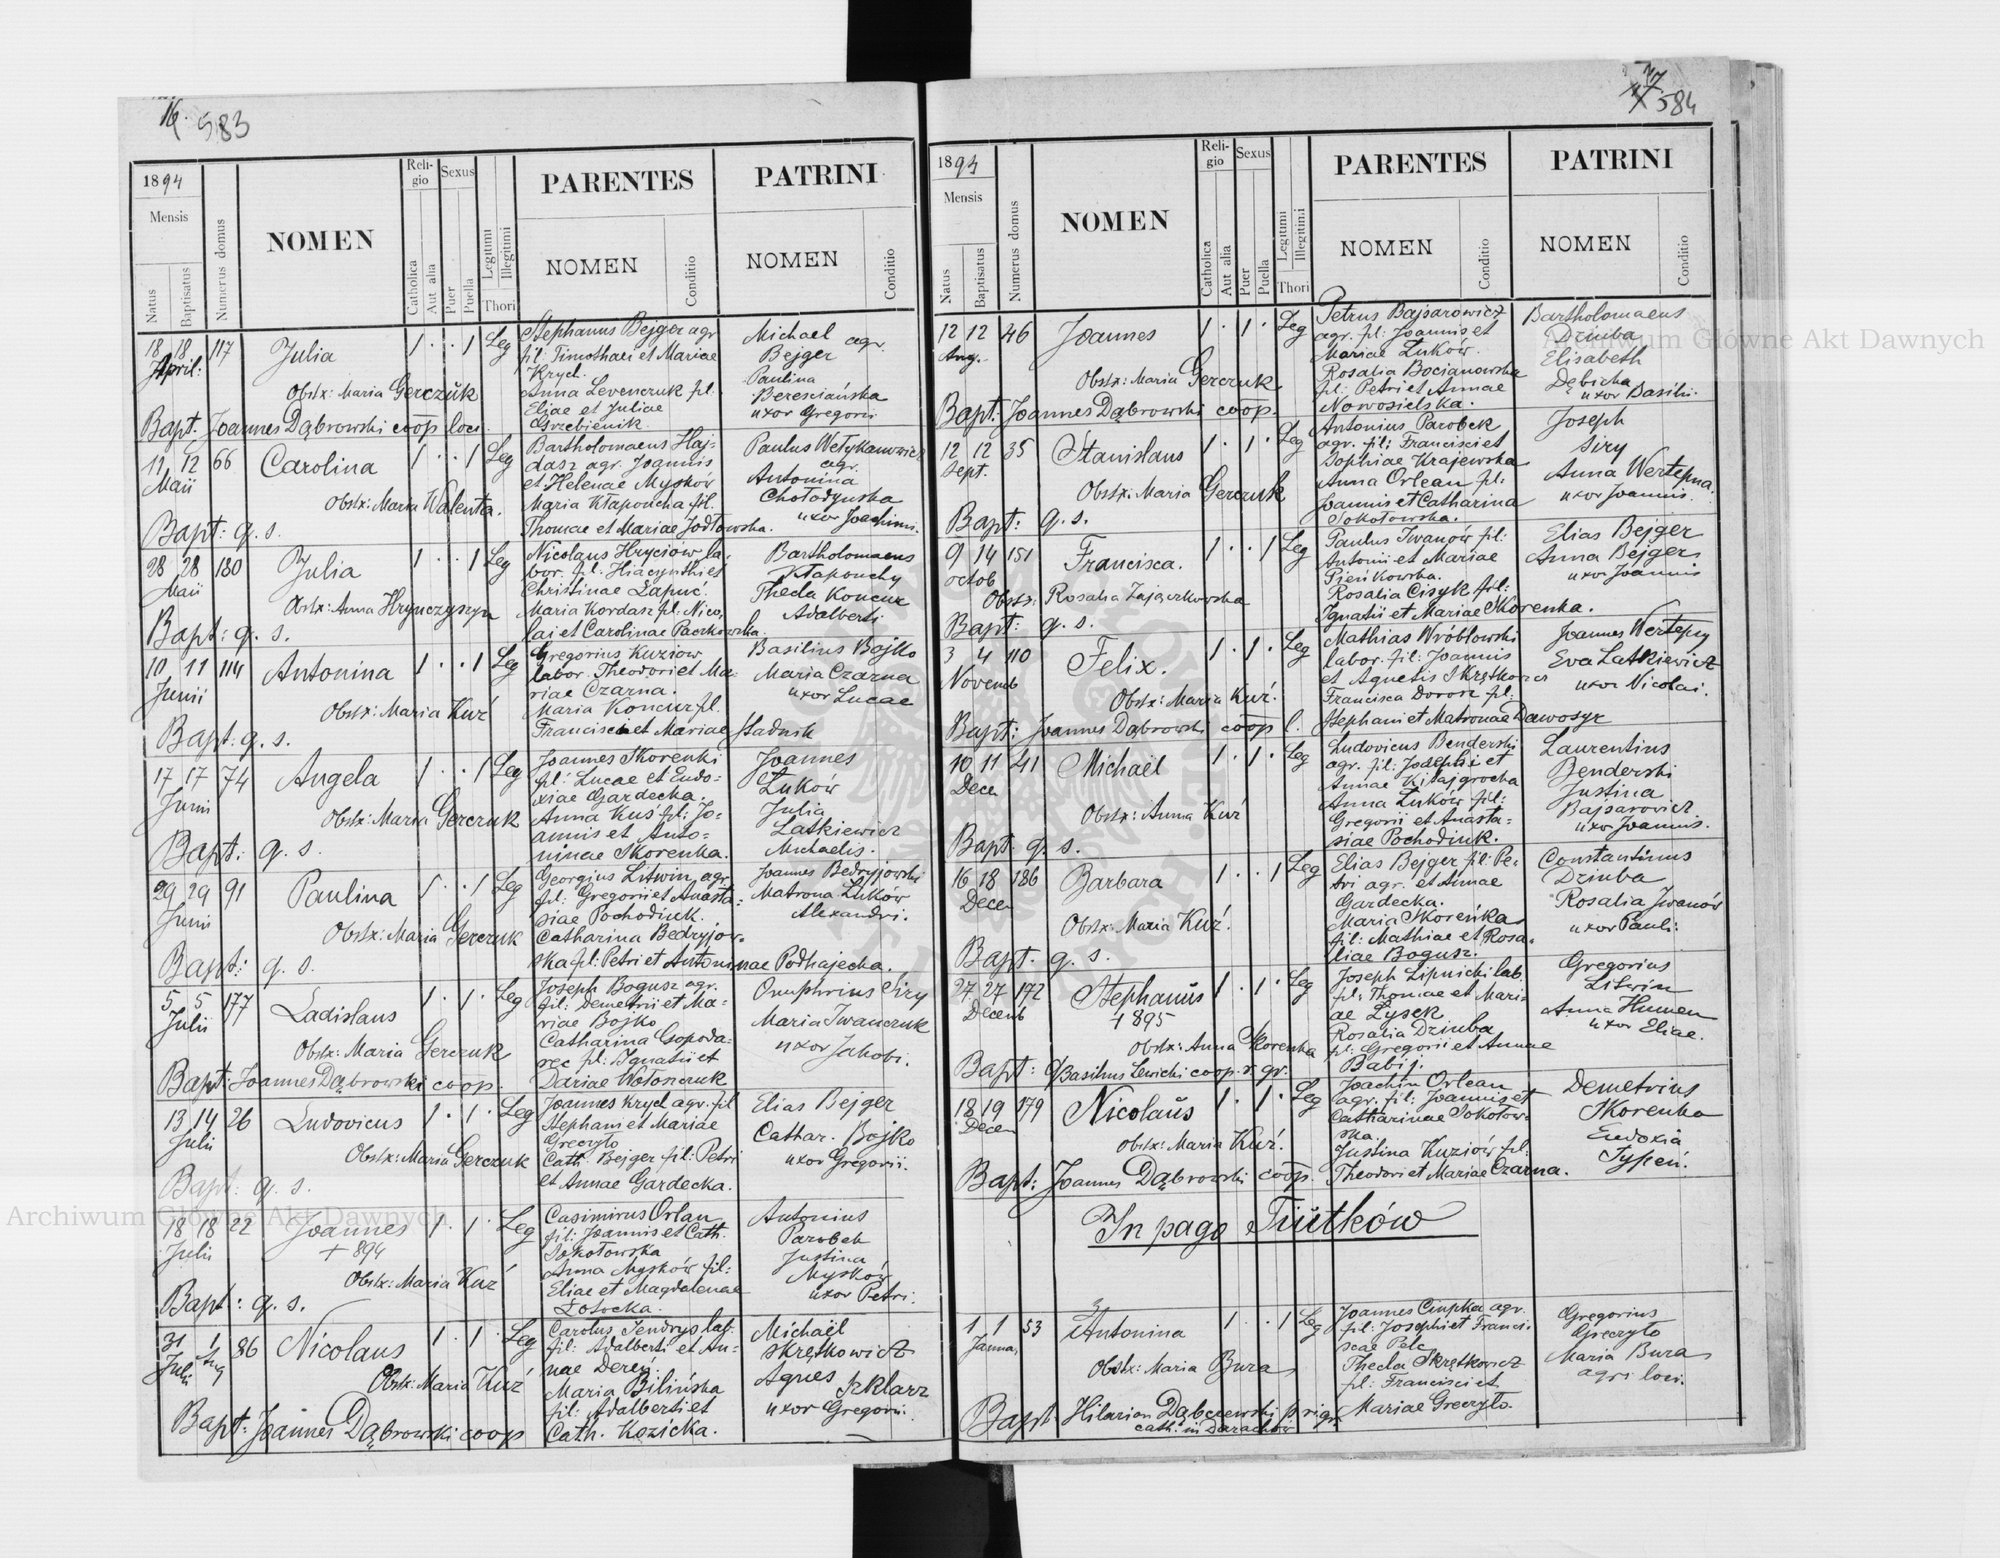 16. 583
1894
Mensis
Natus
Baptisatus
Numerus domus
NOMEN
Religio
Catholica
Aut alia
Sexus
Puer
Puella
Legitimi
Illegitimi
Thori
PARENTES
NOMEN
Conditio
PATRINI
NOMEN
Conditio
18 18 117 Julia 1 . . 1 Leg
April.
Obstx: Maria Gerczuk
Bapt. Joannes Dąbrowski coop loci.
Stephanus Bejger agr
fil: Timothaei et Mariae
Krycl.
Anna Levenczuk fil.
Eliae et Juliae
Grzebienik
Michael agr
Bejger
Paulina
Beresciańska
uxor Gregorii
11 12 66 Carolina 1 . . 1 Leg
Maii
Obstx: Maria Walenta.
Bapt: q. s.
Bartholomaeus Haj-
dasz agr. Joannis
et Helenae Mysków
Maria Kłapoucha fil.
Thomae et Mariae Jodłowska.
Paulus Wełykanowicz
agr.
Antonina
Chołodyńska
uxor Joachimi.
28 28 180 Julia 1 . . 1 Leg
Maii
Obstx: Anna Hrynczyszyn
Bapt: q. s.
Nicolaus Hryciów la-
bor. fil. Hiacynthi et
Christinae Łapuć.
Maria Kordasz fil. Nico-
lai et Carolinae Paczkowska.
Bartholomaeus
Kłapouchy
Thecla Koncur
Adalberti
10 11 114 Antonina 1 . . 1 Leg
Junii
Obstx: Maria Kuź
Bapt: q. s.
Gregorius Kuziow
labor. Theodori et Ma-
riae Czarna.
Maria Koncur fil.
Francisci et Mariae Sładnik
Basilius Bojko
Maria Czarna
uxor Lucae
17 17 74 Angela 1 . . 1 Leg
Junii
Obstx: Maria Gerczuk
Bapt: q. s.
Joannes Skorenki
fil: Lucae et Eudo-
xiae Gardecka.
Anna Kuś fil: Jo-
annis et Anto-
ninae Skorenka.
Joannes
Żuków
Julia
Latkiewicz
Michaelis.
29 29 91 Paulina 1 . . 1 Leg
Junii
Obstx: Maria Gerczuk
Bapt: q. s.
Georgius Litwin agr.
fil: Gregorii et Anasta-
siae Pochodiuk.
Catharina Bedryjow-
ska fil: Petri et Antoninae Podhajecka.
Joannes Bedryjowski
Matrona Żuków
Alexandri.
5 5 177 Ladislaus 1 . 1 . Leg
Julii
Obstx: Maria Gerczuk
Bapt: Joannes Dąbrowski coop.
Joseph Bogusz agr.
fil: Demetrii et Ma-
riae Bojko
Catharina Gospoda-
rec fil: Ignatii et
Dariae Wołoszczuk
Onuphrius Siry
Maria Iwanczuk
uxor Jakobi.
13 14 26 Ludovicus 1 . 1 . Leg
Julii
Obstx: Maria Gerczuk
Bapt: q. s.
Joannes Krycl agr. fil
Stephani et Mariae
Greczyło
Cath. Bejger fil: Petri
et Annae Gardecka.
Elias Bejger
Cathar. Bojko
uxor Gregorii.
18 18 22 Joannes 1 . 1 . Leg
Julii
+ 894
Obstx: Maria Kuź
Bapt: q. s.
Casimirus Orlan
fil: Joannis et Cath.
Sokołowska
Anna Mysków fil:
Eliae et Magdalenae
Łotocka.
Antonius
Parobek
Justina
Mysków
uxor Petri.
31 1 86 Nicolaus 1 . 1 . Leg
Julii Aug
Obstx: Maria Kuź
Bapt: Joannes Dąbrowski coop
Carolus Jendrys lab.
fil: Adalberti et An-
nae Dereń.
Maria Bilińska
fil: Adalberti et
Cath. Kozicka.
Michaël
Skrętkowicz
Agnes Szklarz
uxor Gregorii.
17 584
1893
Mensis
Natus
Baptisatus
Numerus domus
NOMEN
Religio
Catholica
Aut alia
Sexus
Puer
Puella
Legitimi
Illegitimi
Thori
PARENTES
NOMEN
Conditio
PATRINI
NOMEN
Conditio
12 12 46 Joannes 1 . 1 . Leg
Aug.
Obstx: Maria Gerczuk
Bapt: Joannes Dąbrowski coop.
Petrus Bajsarowicz
agr. fil: Joannis et
Mariae Żuków.
Rosalia Bocianowska
fil: Petri et Annae
Nowosielska.
Bartholomaeus
Dziuba
Elisabeth
Dębicka
uxor Basilii.
12 12 35 Stanislaus 1 . 1 . Leg
Sept.
Obstx: Maria Gerczuk
Bapt: q. s.
Antonius Parobek
agr. fil: Francisci et
Sophiae Krajewska
Anna Orlean fil:
Joannis et Catharina
Sokołowska.
Joseph
Siry
Anna Wertepna
uxor Joannis.
9 14 151 Francisca. 1 . . 1 Leg
octob
Obstx: Rosalia Zajączkowska
Bapt: q. s.
Paulus Iwanów fil:
Antonii et Mariae
Pieńkowska.
Rosalia Cisyk fil:
Ignatii et Mariae Skorenka.
Elias Bejger
Anna Bejger
uxor Joannis
3 4 110 Felix. 1 . 1 . Leg
Novemb
Obstx: Maria Kuź.
Bapt: Joannes Dąbrowski coop l.
Mathias Wróblowski
labor. fil: Joannis
et Agnetis Skrętkowicz
Francisca Dorosz fil:
Stephani et Matronae Dawosyr
Joannes Wertepy
Eva Latkiewicz
uxor Nicolai.
10 11 41 Michaël 1 . 1 . Leg
Decem
Obstx: Anna Kuź
Bapt: q. s.
Ludovicus Benderski
agr. fil: Josephi et
Annae Kitajgrocka
Anna Żuków fil:
Gregorii et Anasta-
siae Pochodiuk.
Laurentius
Benderski
Justina
Bajsarowicz
uxor Joannis.
16 18 186 Barbara 1 . . 1 Leg
Decem
Obstx: Maria Kuź.
Bapt. q. s.
Elias Bejger fil: Pe-
tri agr. et Annae
Gardecka.
Maria Skoreńka
fil: Mathiae et Rosa-
liae Bogusz.
Constantinus
Dziuba
Rosalia Iwanów
uxor Pauli:
27 27 172 Stephanŭs 1 . 1 . Leg
Decemb
+ 895
Obstx: Anna Skorenka
Bapt: Basilius Lewicki coop. r. gr.
Joseph Lipnicki lab
fil: Thomae et Mari-
ae Łysek
Rosalia Dziuba
fil: Gregorii et Annae
Babij.
Gregorius
Litwin
Anna Humen
uxor Eliae.
18 19 179 Nicolaŭs 1 . 1 . Leg
Decem
Obstx: Maria Kuź.
Bapt: Joannes Dąbrowski coop.
Joachim Orlean
agr. fil: Joannis et
Catharinae Sokołow-
ska
Justina Kuziów fil:
Theodori et Mariae Czarna.
Demetrius
Skorenka
Eudoxia
Tyfeń.
In pago Tiŭtków
1 1 53 Antonina 1 . . 1 Leg
Janua.
Obstx: Maria Bura
Bapt. Hilarion Dąbczewski p. r. gr.
cath. in Darachów
Joannes Cmpka agr.
fil: Josephi et Franci-
scae Pelc
Thecla Skrętkowicz
fil: Francisci et
Mariae Greczyło.
Gregorius
Greczyło
Maria Bura
agri loci.
Archiwum Główne Akt Dawnych
Archiwum Główne Akt Dawnych